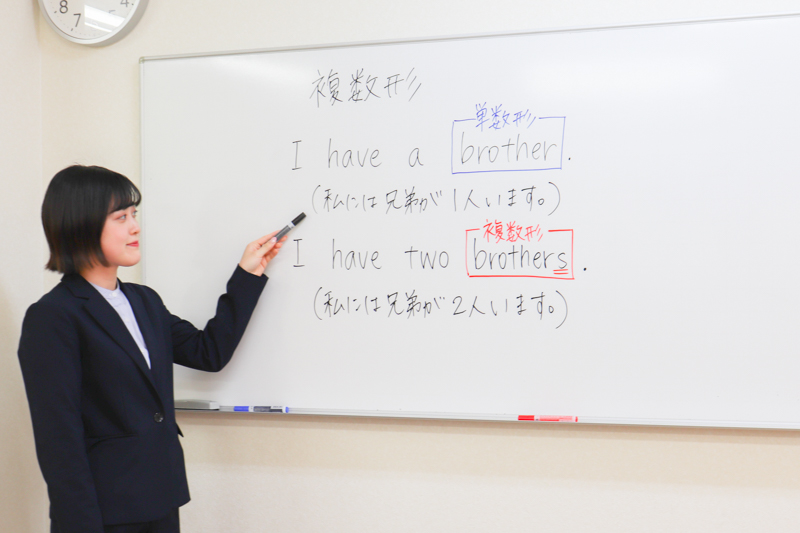 8
7
6
複数形
単数形
I have a brother.
(私には兄弟が1人います。)
複数形
I have two brothers.
(私には兄弟が2人います。)